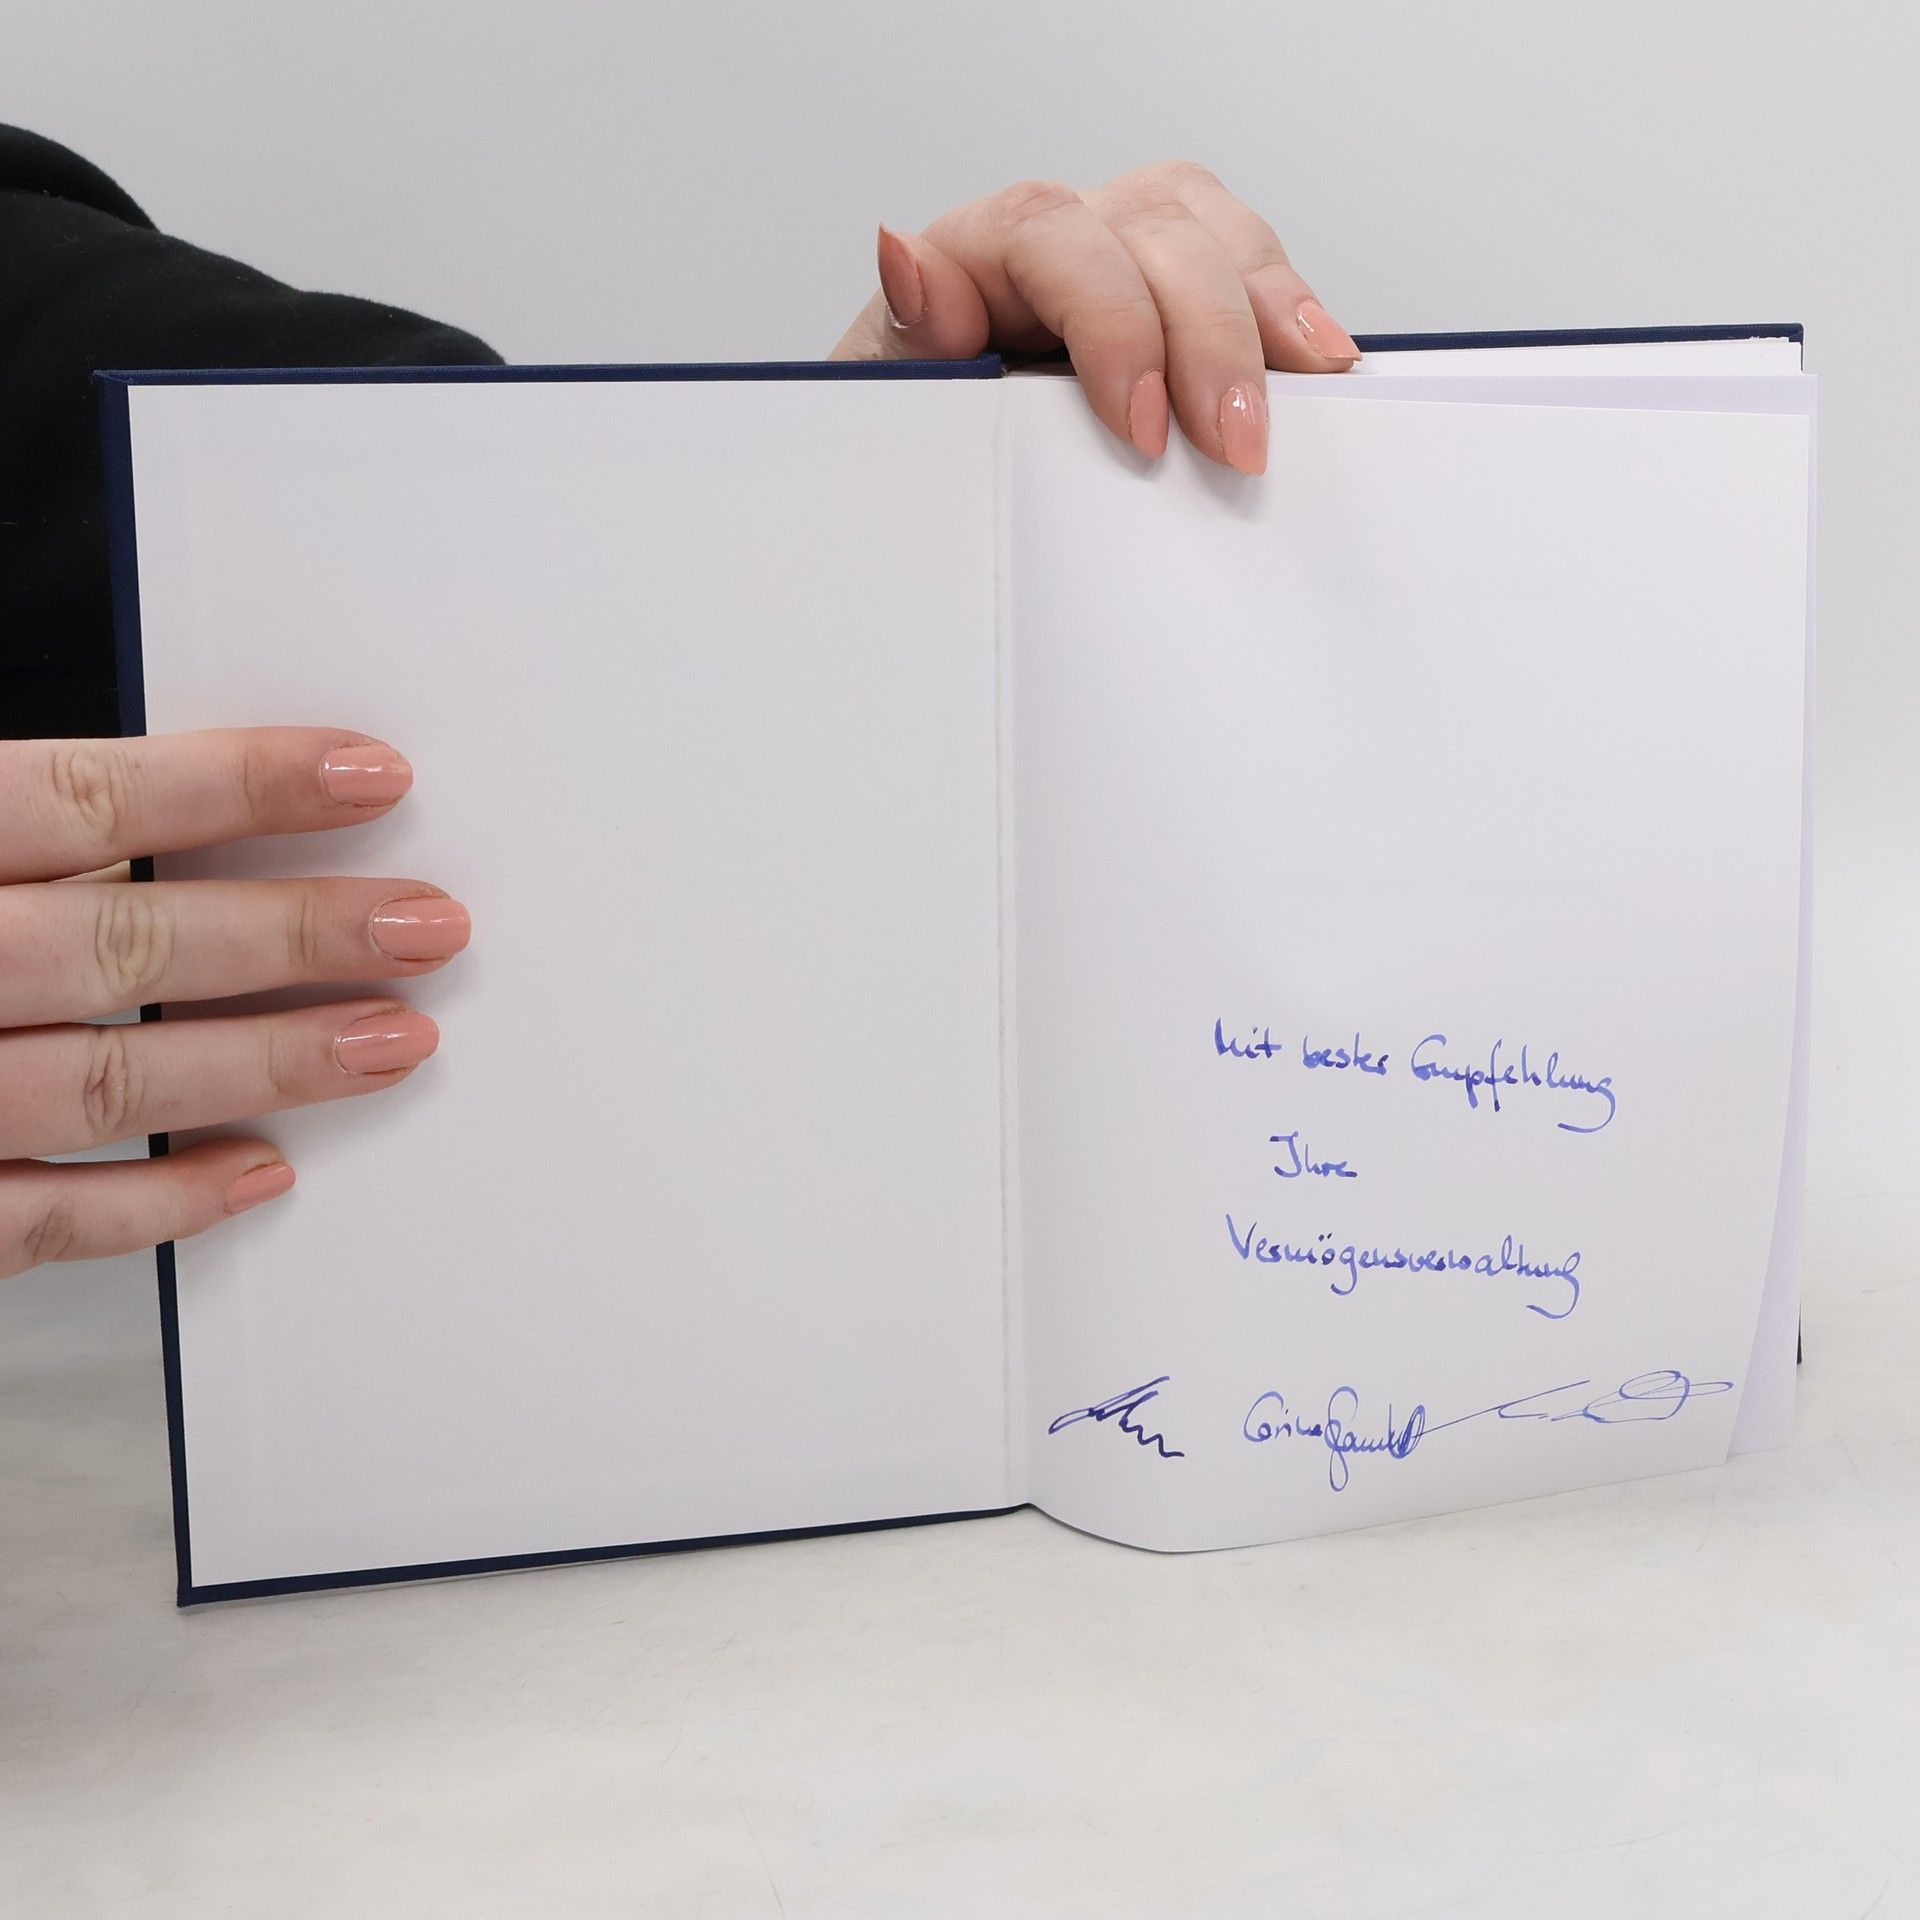 Mit bester Empfehlung
Ihre
Vermögensverwaltung